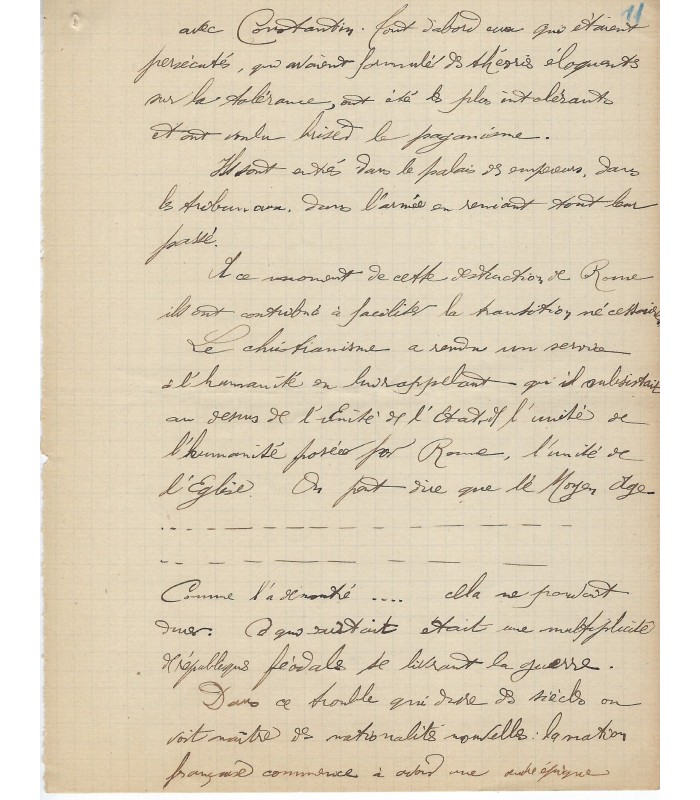 11
avec Constantin. Tout d'abord eux qui étaient
persécutés, qui avaient formulé des théories éloquents
sur la tolérance, ont été les plus intolérants
et ont voulu briser le paganisme.
Ils sont entrés dans le palais des empereurs, dans
les tribunaux, dans l'armée en reniant tout leur
passé.
A ce moment de cette destruction de Rome
ils ont contribué à faciliter la transition nécessaire,
Le christianisme a rendu un service
à l'humanité en lui rappelant qu'il subsistait
au dessus de l'Unité de l'Etat, de l'unité de
l'humanité posée par Rome, l'unité de
l'Eglise. On peut dire que le Moyen Age
Comme l'a démontré .... cela ne pouvait
durer. Ce qui était une multiplicité
de républiques féodales se livrant la guerre.
Dans ce trouble qui dure des siècles on
voit naître des nationalités nouvelles : la nation
française commence à avoir une